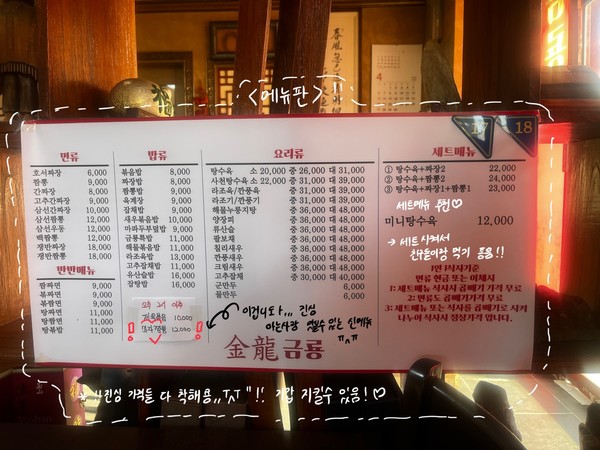 <메뉴판>!!
17
18
면류
호서짜장 6,000
짬뽕 9,000
간짜장 8,000
고추간짜장 9,000
삼선간짜장 10,000
삼선짬뽕 12,000
삼선우동 12,000
백짬뽕 12,000
쟁반짜장 18,000
쟁반짬뽕 18,000
반반메뉴
짬짜면 9,000
볶짜면 9,000
볶짬면 9,000
탕짜면 11,000
탕짬면 11,000
탕볶밥 11,000
밥류
볶음밥 8,000
짜장밥 8,000
짬뽕밥 9,000
육개장 9,000
잡채밥 9,000
새우볶음밥 9,000
마파두부덮밥 9,000
금룡특밥 11,000
해물볶음밥 11,000
라조육밥 13,000
고추잡채밥 11,000
유산슬밥 15,000
잡탕밥 16,000
10,000
12,000
요리류
탕수육 소 20,000 중 26,000 대 31,000
사천탕수육 소 22,000 중 31,000 대 39,000
라조육/깐풍육 중 31,000 대 39,000
라조기/깐풍기 중 31,000 대 39,000
해물누룽지탕 중 36,000 대 48,000
양장피 중 36,000 대 48,000
류산슬 중 36,000 대 48,000
팔보채 중 36,000 대 48,000
칠리새우 중 36,000 대 48,000
깐풍새우 중 36,000 대 48,000
크림새우 중 36,000 대 48,000
고추잡채 중 36,000 대 48,000
군만두 6,000
물만두 6,000
이겁니다,,, 진심
아는사람 먹을수 있는 신메뉴
金龍 금룡
세트메뉴
① 탕수육+짜장2 22,000
② 탕수육+짬뽕2 24,000
③ 탕수육+짜장1+짬뽕1 23,000
세트메뉴 추천♡
미니탕수육 12,000
→ 세트 시켜서
친구들이랑 먹기 굿!!
1인 1식사기준
면류 현금 또는 이체시
1: 세트메뉴 식사시 곱배기 가격 무료
2: 면류도 곱배기가격 무료
3: 세트메뉴 또는 식사를 곱배기로 시켜
나누어 식사시 정상가격 입니다.
진심 가격들 다 착해용,, ㅠㅠ!! 지갑 지킬수 있음!♡